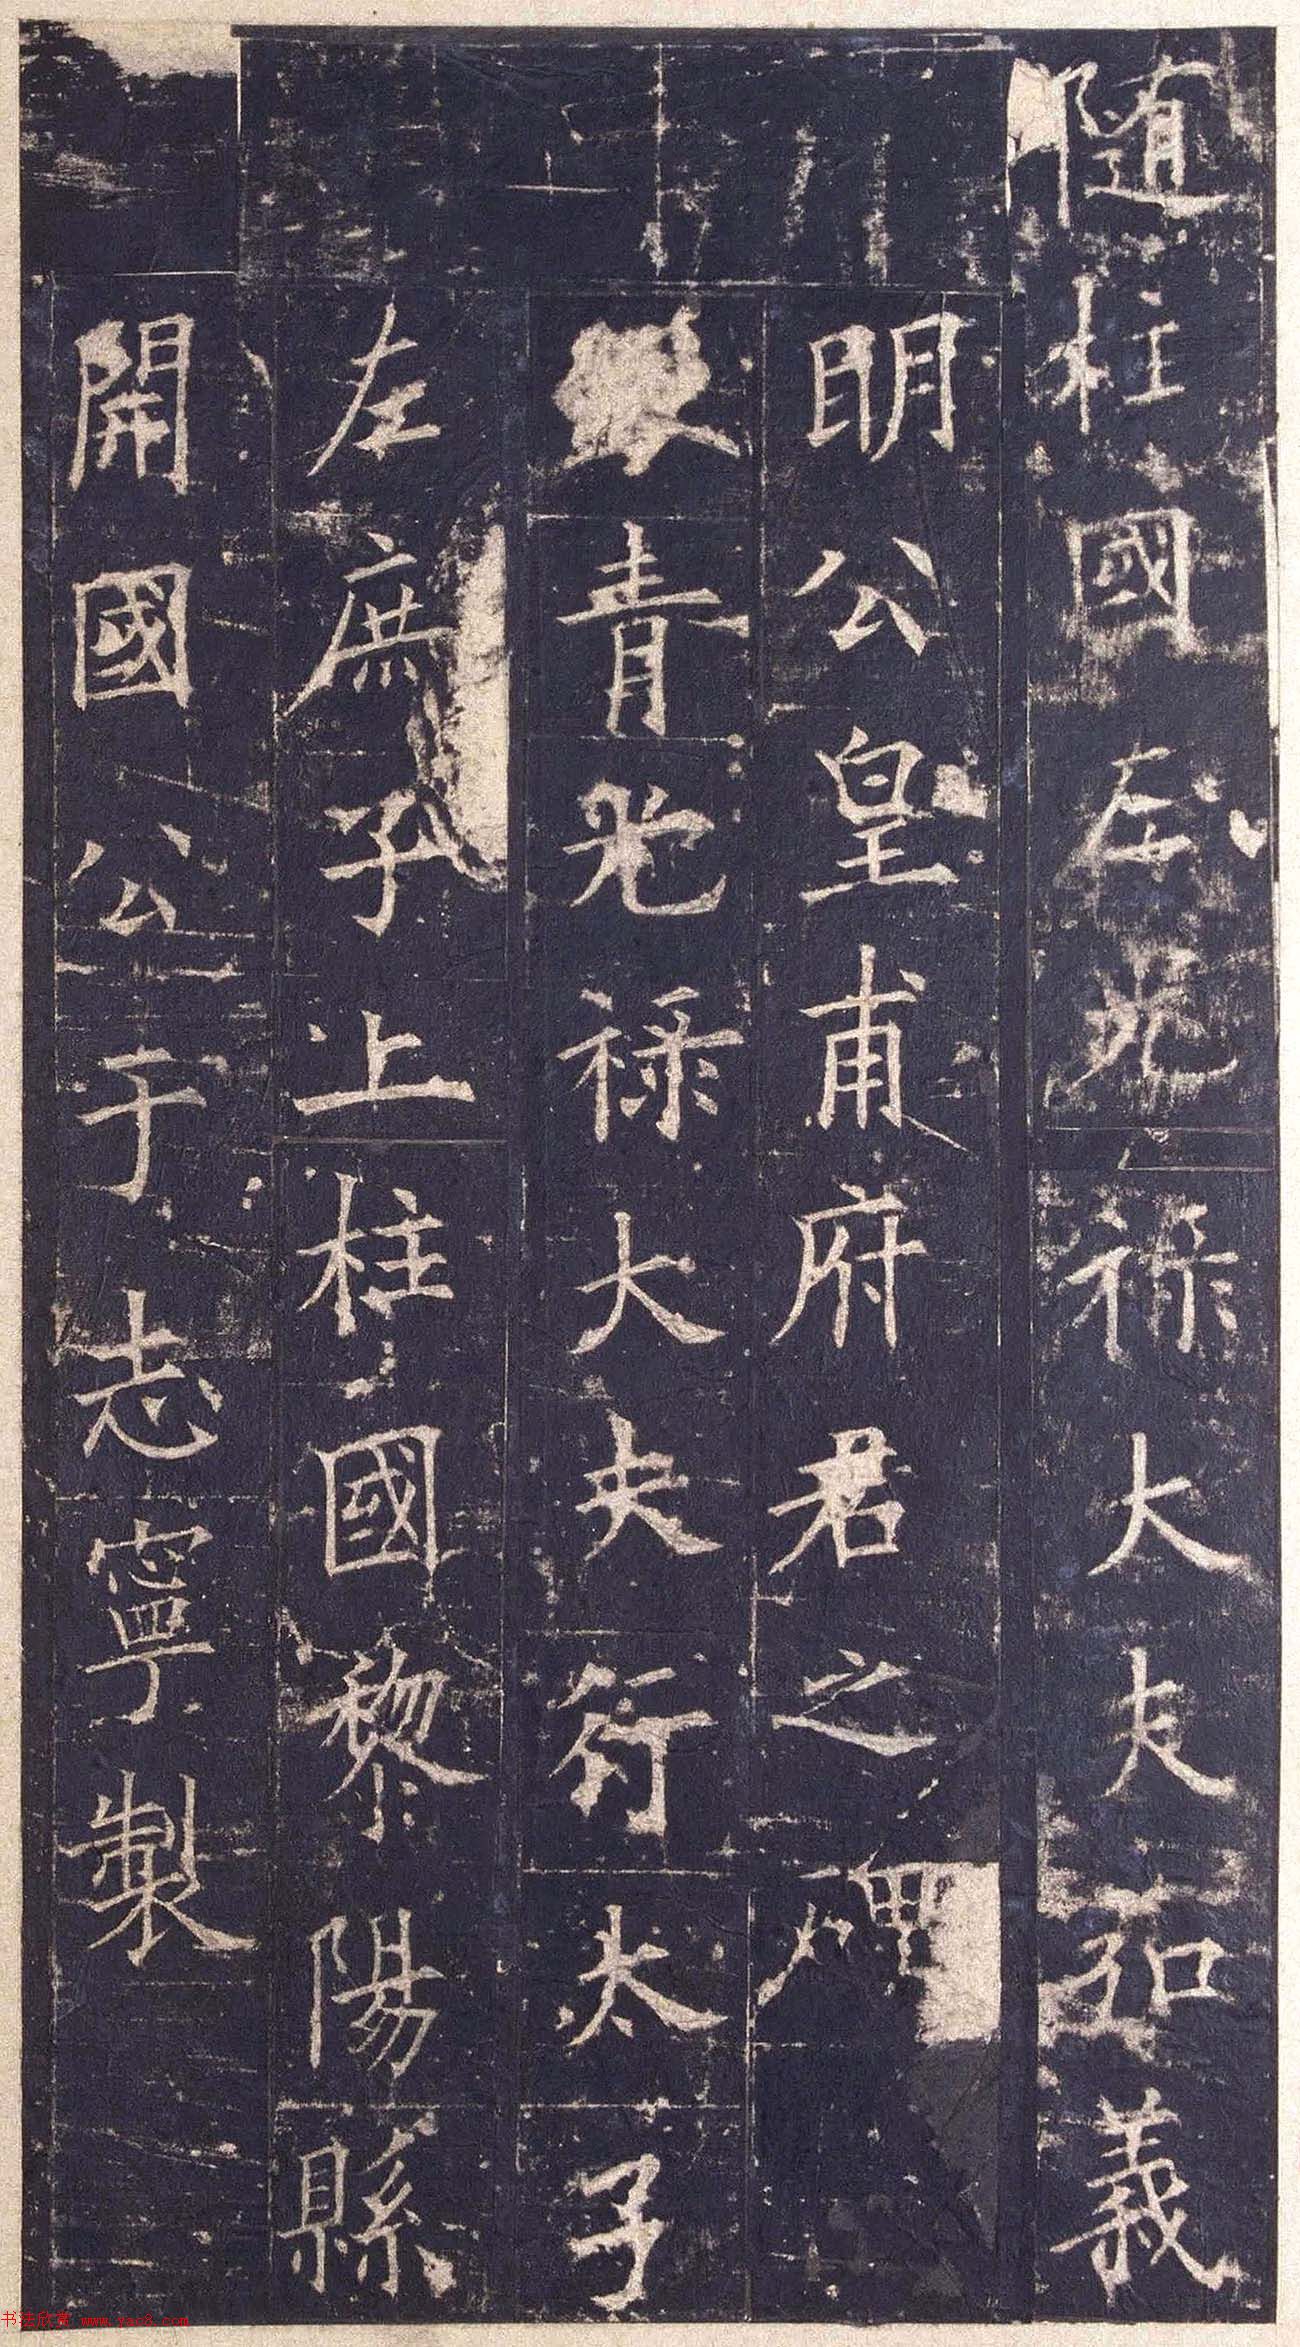 隨柱國左光祿大夫弘義
明公皇甫府君之碑
銀青光祿大夫行太子
左庶子上柱國黎陽縣
開國公于志寧製
书法欣赏 www.yac8.com